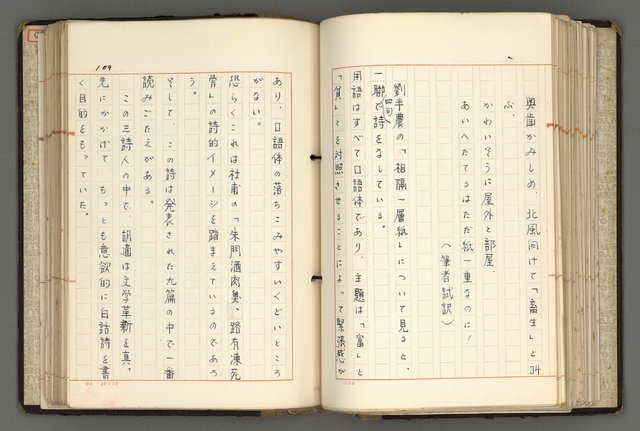 奥歯かみしめ、北風向けて「畜生」と叫
ぶ。
かわいそうに屋外と部屋、
あいへだてるはただ紙一重なのに!
(筆者試訳)
劉半農の「相隔一層紙」について見ると、
一聯四句で詩をなしている。
用語はすべて口語体であり、主題は「富」と
「貧」とを対照させることによって緊張感が
109
あり、口語体の落ちこみやすいくどいところ
がない。
恐らくこれは杜甫の「朱門酒肉臭、路有凍死
骨」の詩的イメージを踏まえているのであろ
う。
そして、この詩は発表された九篇の中で一番
読みごたえがある。
この三詩人の中で、胡適は文学革新を真っ
先にかかげて、もっとも意欲的に白話詩を書
く目的をもっていた。